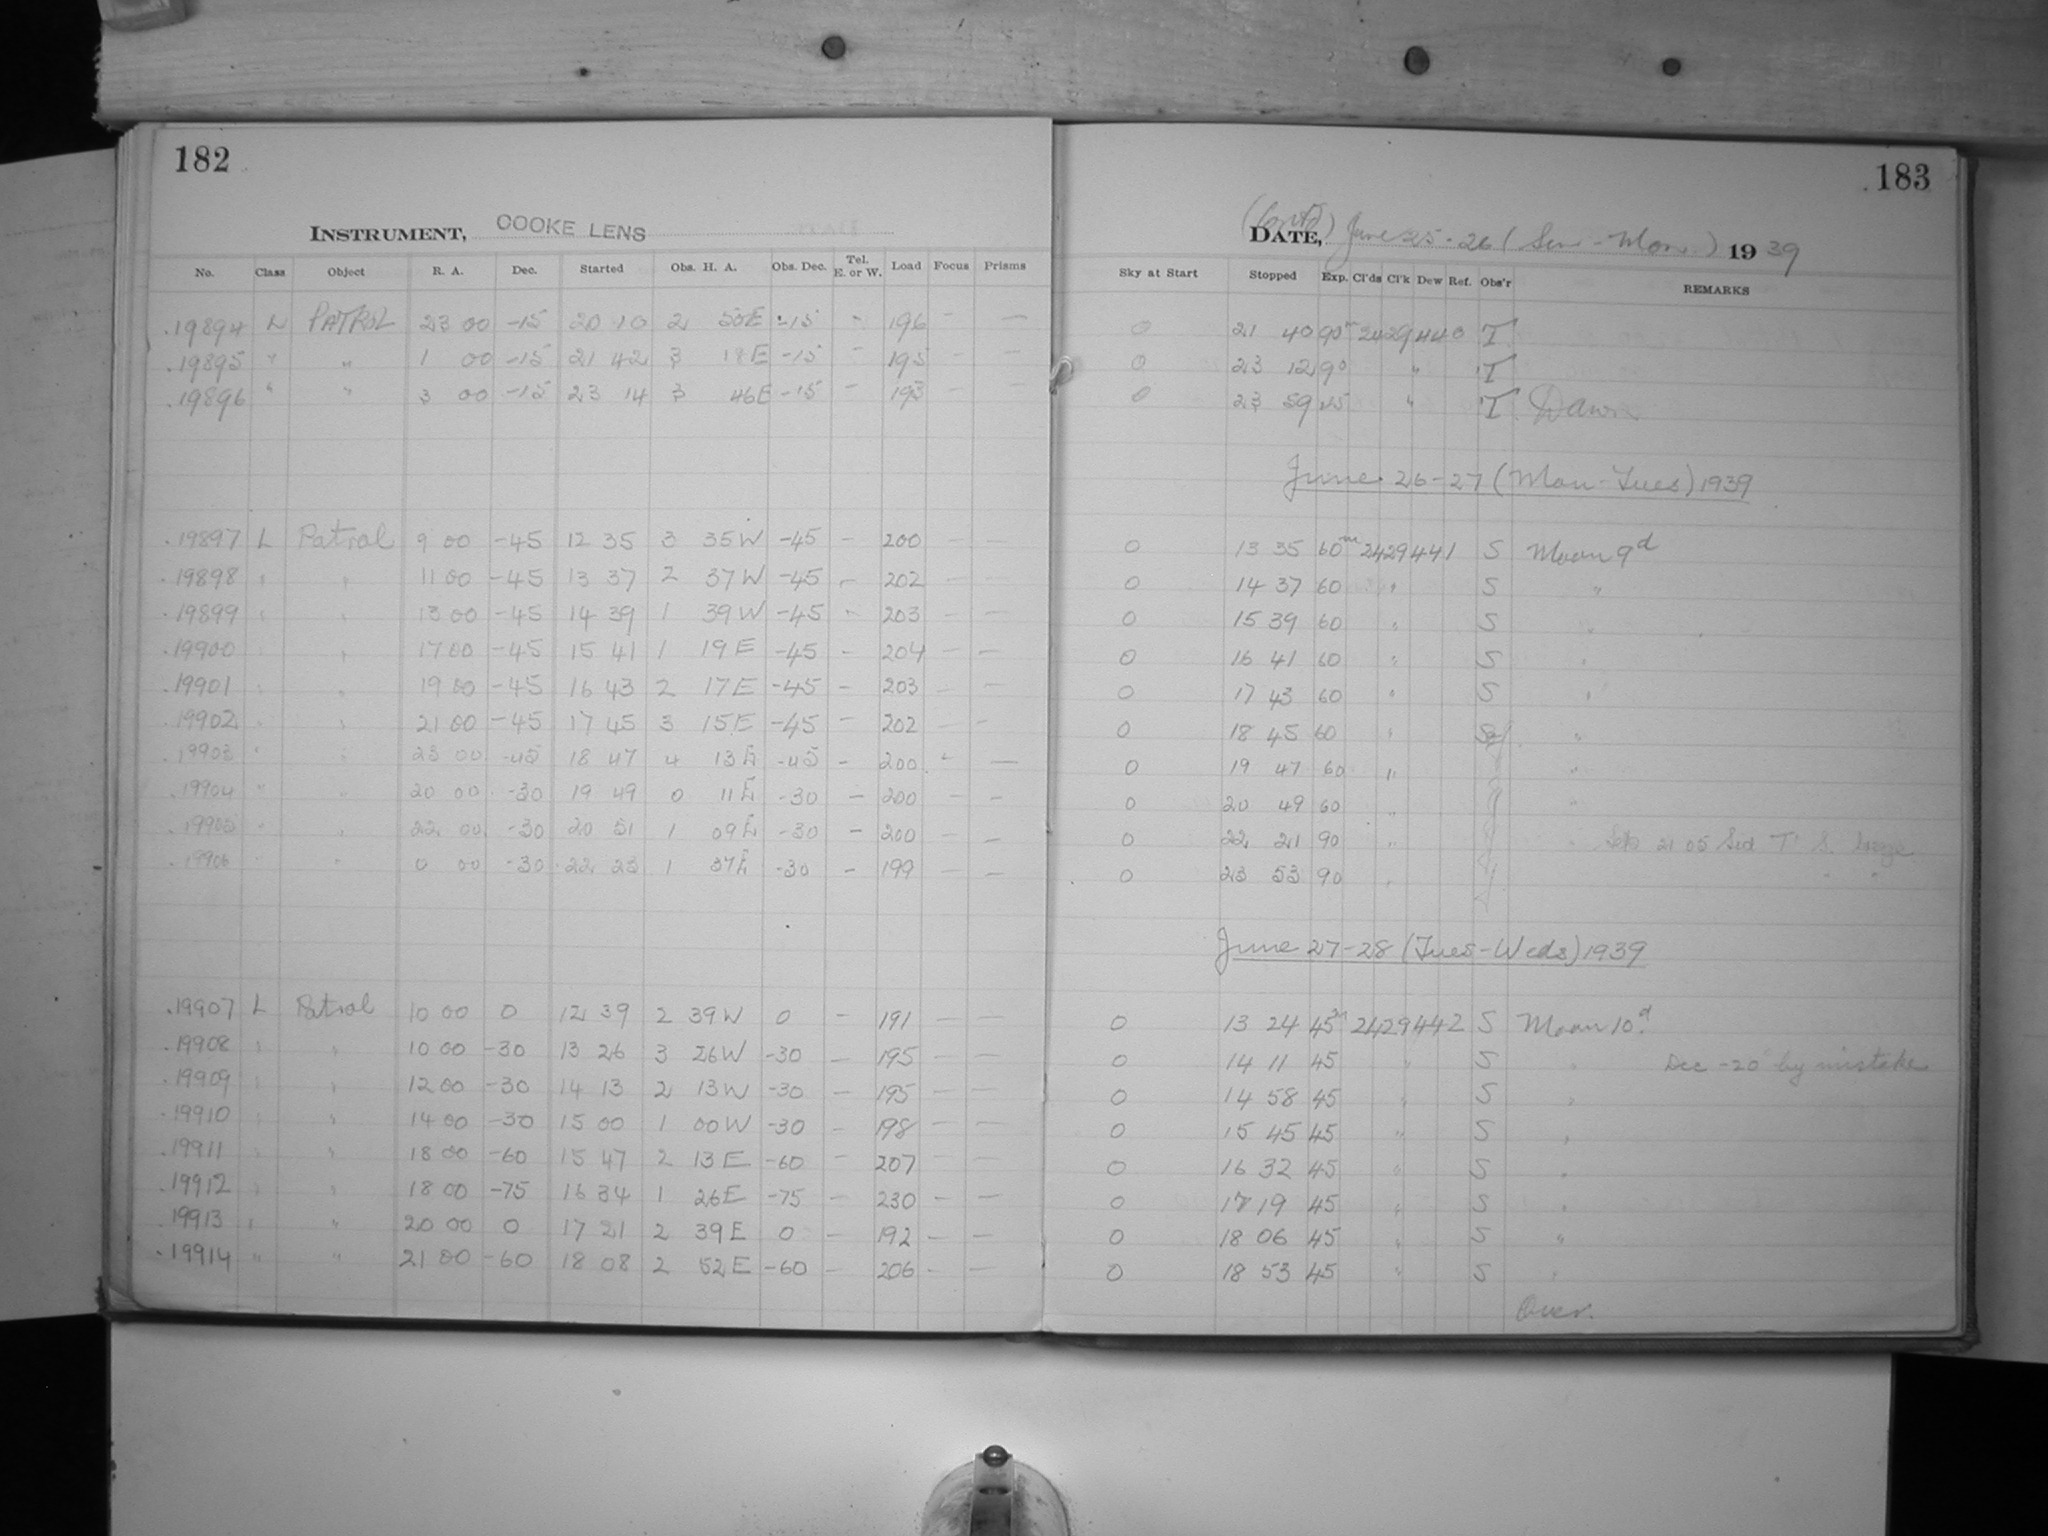 182
INSTRUMENT, COOKE LENS
No. Class Object R. A. Dec. Started Obs. H. A. Obs. Dec. Tel. E. or W. Load Focus Prisms
.19894 L PATROL 23 00 -15 20 10 2 50E -15 - 196 - -
.19895 " " 1 00 -15 21 42 3 18E -15 - 195 - -
.19896 " " 3 00 -15 23 14 3 46E -15 - 193 - -
.19897 L Patrol 9 00 -45 12 35 3 35W -45 - 200 - -
.19898 " " 11 00 -45 13 37 2 37W -45 - 202 - -
.19899 " " 13 00 -45 14 39 1 39W -45 - 203 - -
.19900 " " 17 00 -45 15 41 1 19E -45 - 204 - -
.19901 " " 19 00 -45 16 43 2 17E -45 - 203 - -
.19902 " " 21 00 -45 17 45 3 15E -45 - 202 - -
.19903 " " 23 00 -45 18 47 4 13E -45 - 200 - -
.19904 " " 20 00 -30 19 49 0 11E -30 - 200 - -
.19905 " " 22 00 -30 20 51 1 09E -30 - 200 - -
.19906 " " 0 00 -30 22 23 1 37E -30 - 199 - -
.19907 L Patrol 10 00 0 12 39 2 39W 0 - 191 - -
.19908 " " 10 00 -30 13 26 3 26W -30 - 195 - -
.19909 " " 12 00 -30 14 13 2 13W -30 - 195 - -
.19910 " " 14 00 -30 15 00 1 00W -30 - 198 - -
.19911 " " 18 00 -60 15 47 2 13E -60 - 207 - -
.19912 " " 18 00 -75 16 34 1 26E -75 - 230 - -
.19913 " " 20 00 0 17 21 2 39E 0 - 192 - -
.19914 " " 21 00 -60 18 08 2 52E -60 - 206 - -
183
(Contd) DATE, June 25-26 (Sun-Mon) 1939
Sky at Start Stopped Exp. Cl'ds Cl'k Dew Ref. Obs'r REMARKS
0 21 40 90m 2429440 T
0 23 12 90 " T
0 23 59 45 " T Dawn
June 26-27 (Mon-Tues) 1939
0 13 35 60m 2429441 S Moon 9d
0 14 37 60 " S "
0 15 39 60 " S "
0 16 41 60 " S "
0 17 43 60 " S "
0 18 45 60 " "
0 19 47 60 " "
0 20 49 60 " "
0 22 21 90 " " 21 05 Sid T. S.
0 23 53 90 "
June 27-28 (Tues-Weds) 1939
0 13 24 45m 2429442 S Moon 10d
0 14 11 45 " S " Dec -20° by mistake
0 14 58 45 " S "
0 15 45 45 " S "
0 16 32 45 " S "
0 17 19 45 " S "
0 18 06 45 " S "
0 18 53 45 " S "
Over.